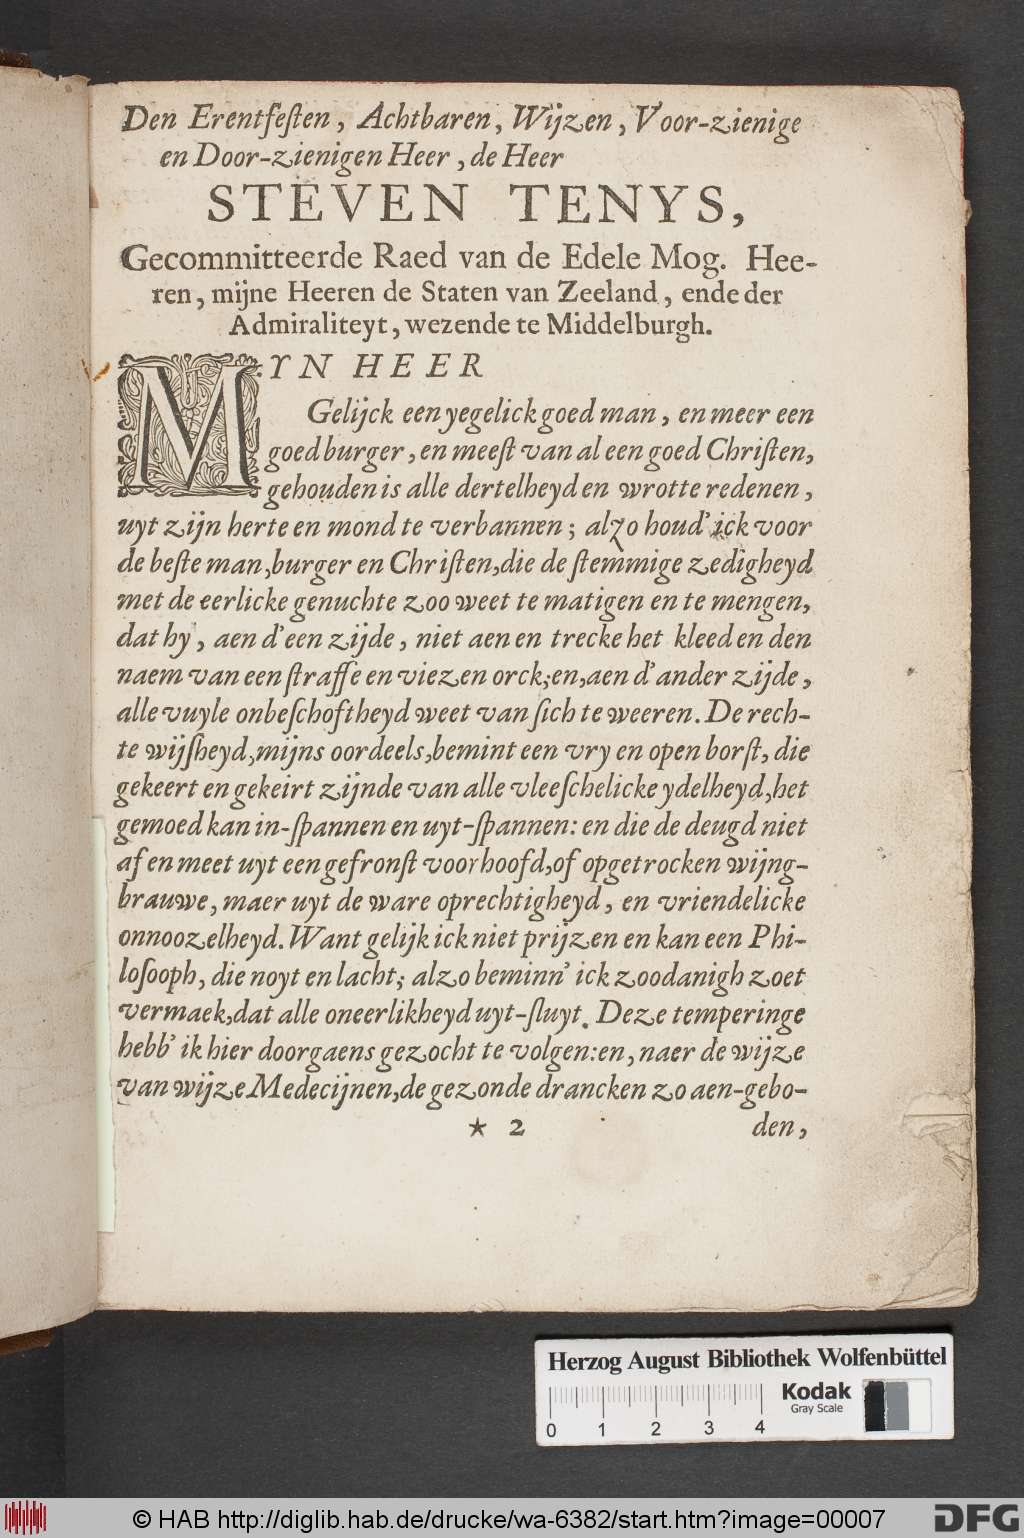 Den Erentfeſten, Achtbaren, Wijzen, Voor-zienige
en Door-zienigen Heer, de Heer
STEVEN TENYS,
Gecommitteerde Raed van de Edele Mog. Hee-
ren, mijne Heeren de Staten van Zeeland, ende der
Admiraliteyt, wezende te Middelburgh.
MYN HEER
Gelijck een yegelick goed man, en meer een
goed burger, en meeſt van al een goed Chriſten,
gehouden is alle dertelheyd en wrotte redenen,
uyt zijn herte en mond te verbannen; alzo houd' ick voor
de beſte man, burger en Chriſten, die de ſtemmige zedigheyd
met de eerlicke genuchte zoo weet te matigen en te mengen,
dat hy, aen d'een zijde, niet aen en trecke het kleed en den
naem van een ſtraffe en viezen orck; en, aen d'ander zijde,
alle vuyle onbeſchoftheyd weet van ſich te weeren. De rech-
te wijſheyd, mijns oordeels, bemint een vry en open borſt, die
gekeert en gekeirt zijnde van alle vleeſchelicke ydelheyd, het
gemoed kan in-ſpannen en uyt-ſpannen: en die de deugd niet
af en meet uyt een gefronſt voorhoofd, of opgetrocken wijng-
brauwe, maer uyt de ware oprechtigheyd, en vriendelicke
onnoozelheyd. Want gelijk ick niet prijzen en kan een Phi-
loſooph, die noyt en lacht; alzo beminn' ick zoodanigh zoet
vermaek, dat alle oneerlikheyd uyt-ſluyt. Deze temperinge
hebb' ik hier doorgaens gezocht te volgen: en, naer de wijze
van wijze Medecijnen, de gezonde drancken zo aen-gebo-
★ 2 den,
Herzog August Bibliothek Wolfenbüttel
Kodak
Gray Scale
0 1 2 3 4
© HAB http://diglib.hab.de/drucke/wa-6382/start.htm?image=00007
DFG